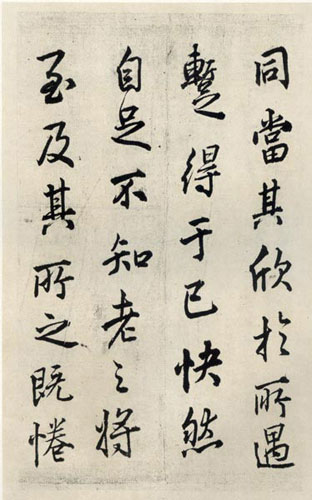 同當其欣於所遇
蹔得于己快然
自足不知老之將
至及其所之既惓